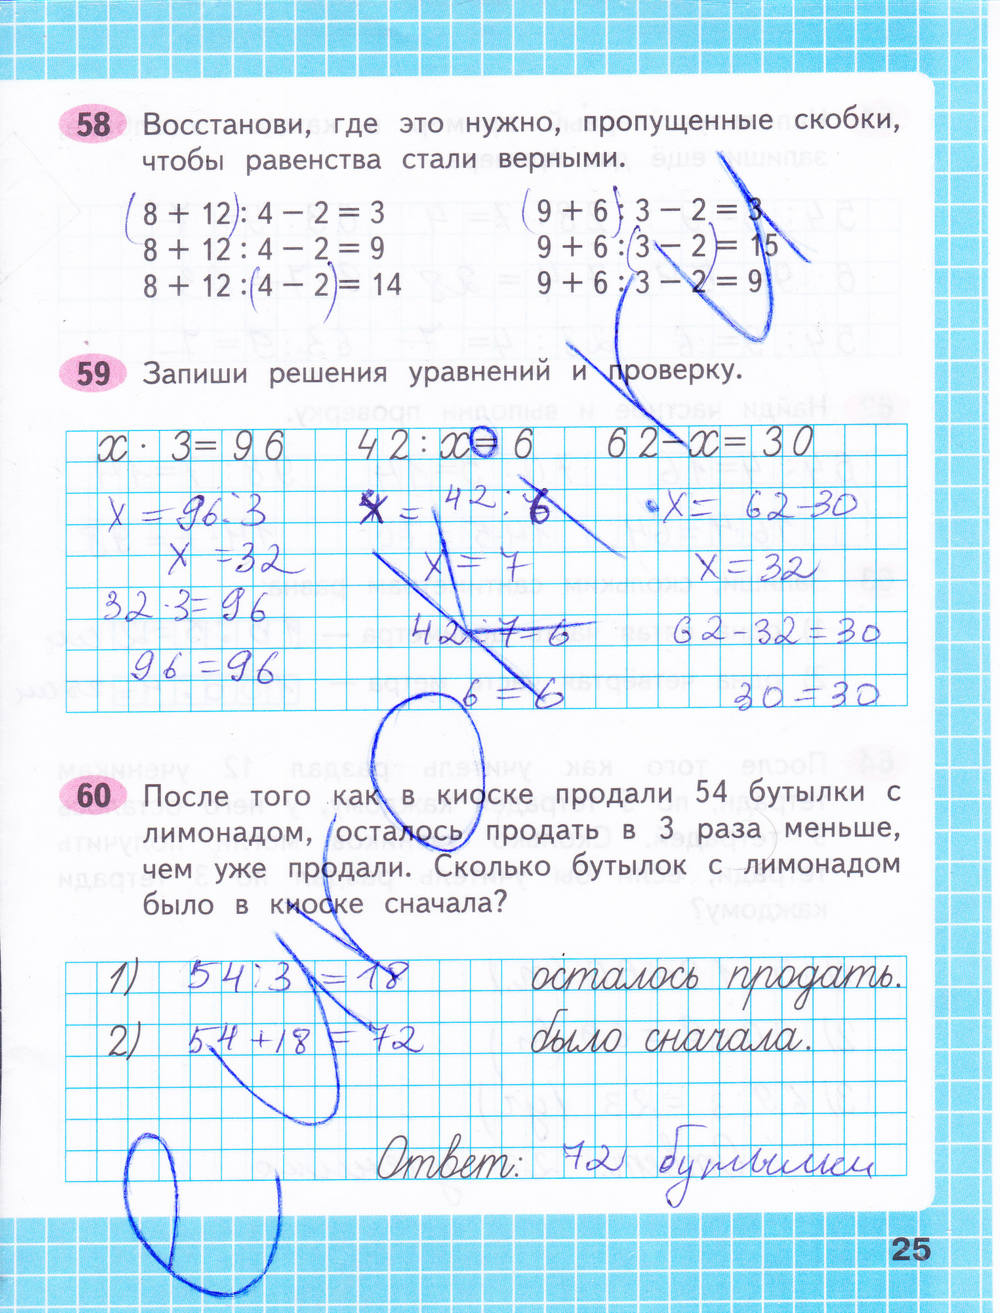 58 Восстанови, где это нужно, пропущенные скобки,
чтобы равенства стали верными.
(8 + 12) : 4 − 2 = 3 (9 + 6) : 3 − 2 = 3
8 + 12 : 4 − 2 = 9 9 + 6 : (3 − 2) = 15
8 + 12 : (4 − 2) = 14 9 + 6 : 3 − 2 = 9
59 Запиши решения уравнений и проверку.
x · 3 = 96 42 : x = 6 62 − x = 30
x = 96 : 3 x = 42 : 6 x = 62 - 30
x = 32 x = 7 x = 32
32 · 3 = 96 42 : 7 = 6 62 - 32 = 30
96 = 96 6 = 6 30 = 30
60 После того как в киоске продали 54 бутылки с
лимонадом, осталось продать в 3 раза меньше,
чем уже продали. Сколько бутылок с лимонадом
было в киоске сначала?
1) 54 : 3 = 18 осталось продать.
2) 54 + 18 = 72 было сначала.
Ответ: 72 бутылки
25